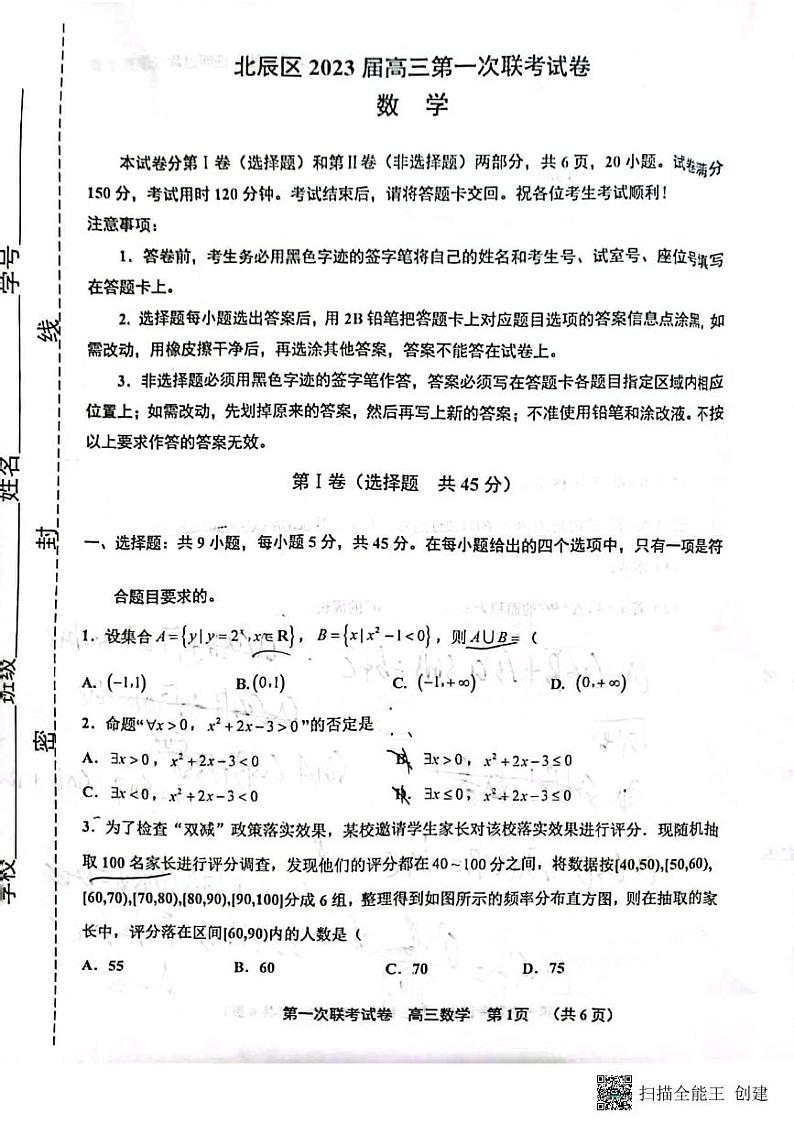 北辰区 2023 届高三第一次联考试卷
数 学
本试卷分第Ⅰ卷（选择题）和第Ⅱ卷（非选择题）两部分，共 6 页，20 小题。试卷满分
150 分，考试用时 120 分钟。考试结束后，请将答题卡交回。祝各位考生考试顺利！
注意事项：
1．答卷前，考生务必用黑色字迹的签字笔将自己的姓名和考生号、试室号、座位号填写
在答题卡上。
2. 选择题每小题选出答案后，用 2B 铅笔把答题卡上对应题目选项的答案信息点涂黑, 如
需改动，用橡皮擦干净后，再选涂其他答案，答案不能答在试卷上。
3．非选择题必须用黑色字迹的签字笔作答，答案必须写在答题卡各题目指定区域内相应
位置上；如需改动，先划掉原来的答案，然后再写上新的答案；不准使用铅笔和涂改液。不按
以上要求作答的答案无效。
第Ⅰ卷（选择题 共 45 分）
一、选择题：共 9 小题，每小题 5 分，共 45 分。在每小题给出的四个选项中，只有一项是符
合题目要求的。
1．设集合 A={y|y=2ˣ,x∈R}，B={x|x²-1<0}，则 A∪B=（
A. (-1,1) B.(0,1) C. (-1,+∞) D. (0,+∞)
2．命题“∀x>0，x²+2x-3>0”的否定是
A．∃x>0，x²+2x-3<0 B．∃x>0，x²+2x-3≤0
C．∃x<0，x²+2x-3<0 D．∃x≤0，x²+2x-3≤0
3．为了检查“双减”政策落实效果，某校邀请学生家长对该校落实效果进行评分．现随机抽
取 100 名家长进行评分调查，发现他们的评分都在 40~100 分之间，将数据按[40,50),[50,60),
[60,70),[70,80),[80,90),[90,100]分成 6 组，整理得到如图所示的频率分布直方图，则在抽取的家
长中，评分落在区间[60,90)内的人数是（
A．55 B．60 C．70 D．75
第一次联考试卷 高三数学 第 1页 （共 6 页）
学校 班级 姓名 学号
密 封 线
扫描全能王 创建